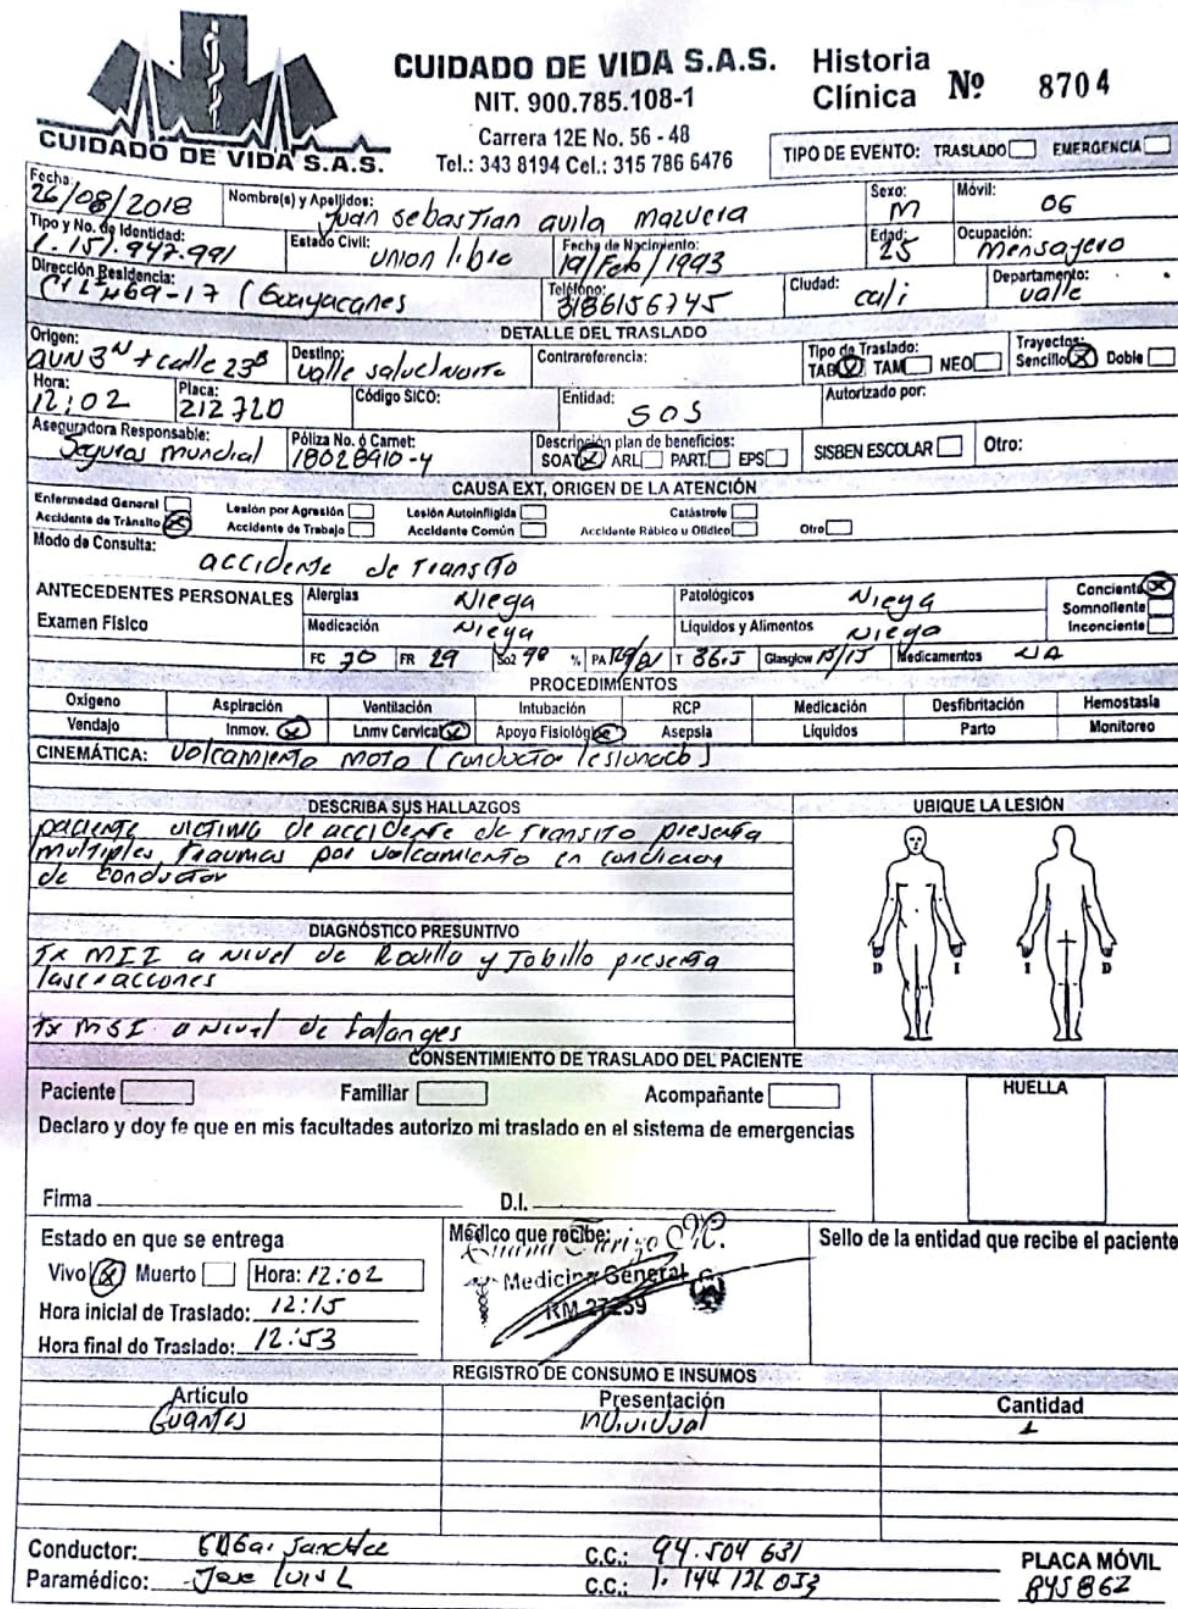 CUIDADO DE VIDA S.A.S.
CUIDADO DE VIDA S.A.S.
NIT. 900.785.108-1
Carrera 12E No. 56 - 48
Tel.: 343 8194 Cel.: 315 786 6476
Historia Clínica Nº 8704
TIPO DE EVENTO: TRASLADO EMERGENCIA
Fecha: 26/08/2018 Nombre(s) y Apellidos: Juan Sebastian avila mazuera Sexo: M Móvil: 06
Tipo y No. de Identidad: 1.151.947.991 Estado Civil: union libre Fecha de Nacimiento: 19/Feb/1993 Edad: 25 Ocupación: Mensajero
Dirección Residencia: 69-17 (Guayacanes Teléfono: 3186156745 Ciudad: cali Departamento: valle
DETALLE DEL TRASLADO
Origen: 3N + calle 23B Destino: valle salud norte Contrareferencia: Tipo de Traslado: TAB TAM NEO Trayectos: Sencillo X Doble
Hora: 12:02 Placa: 212720 Código SICO: Entidad: SOS Autorizado por:
Aseguradora Responsable: Seguros mundial Póliza No. ó Carnet: 18028910-4 Descripción plan de beneficios: SOAT X ARL PART. EPS SISBEN ESCOLAR Otro:
CAUSA EXT, ORIGEN DE LA ATENCIÓN
Enfermedad General Lesión por Agresión Lesión Autoinfligida Catástrofe
Accidente de Tránsito X Accidente de Trabajo Accidente Común Accidente Rábico u Ofídico Otro
Modo de Consulta: accidente de transito
ANTECEDENTES PERSONALES Alergias Niega Patológicos Niega Conciente X
Somnoliente
Examen Físico Medicación Niega Líquidos y Alimentos Niega Inconciente
FC 70 FR 29 So2 98 % PA T 36.5 Glasglow 15/15 Medicamentos NA
PROCEDIMIENTOS
Oxigeno Aspiración Ventilación Intubación RCP Medicación Desfibritación Hemostasia
Vendaje Inmov. X Lnmv Cervical X Apoyo Fisiológi X Asepsia Líquidos Parto Monitoreo
CINEMÁTICA: Volcamiento moto (conductor lesionado)
DESCRIBA SUS HALLAZGOS UBIQUE LA LESIÓN
paciente victima de accidente de transito presenta
multiples traumas por volcamiento en condicion
de conductor
DIAGNÓSTICO PRESUNTIVO
Tx MII a nivel de Rodilla y Tobillo presenta
laseracciones
D I I D
Tx MSI a nivel de falanges
CONSENTIMIENTO DE TRASLADO DEL PACIENTE
Paciente Familiar Acompañante HUELLA
Declaro y doy fe que en mis facultades autorizo mi traslado en el sistema de emergencias
Firma D.I.
Estado en que se entrega Médico que recibe: Sello de la entidad que recibe el paciente
Vivo X Muerto Hora: 12:02 Medicina General
Hora inicial de Traslado: 12:15 RM 27239
Hora final do Traslado: 12:53
REGISTRO DE CONSUMO E INSUMOS
Artículo Presentación Cantidad
Guantes individual 1
Conductor: Edgar Sanchez C.C.: 94.504 631 PLACA MÓVIL
Paramédico: Jose Luis L C.C.: 1.144 126 053